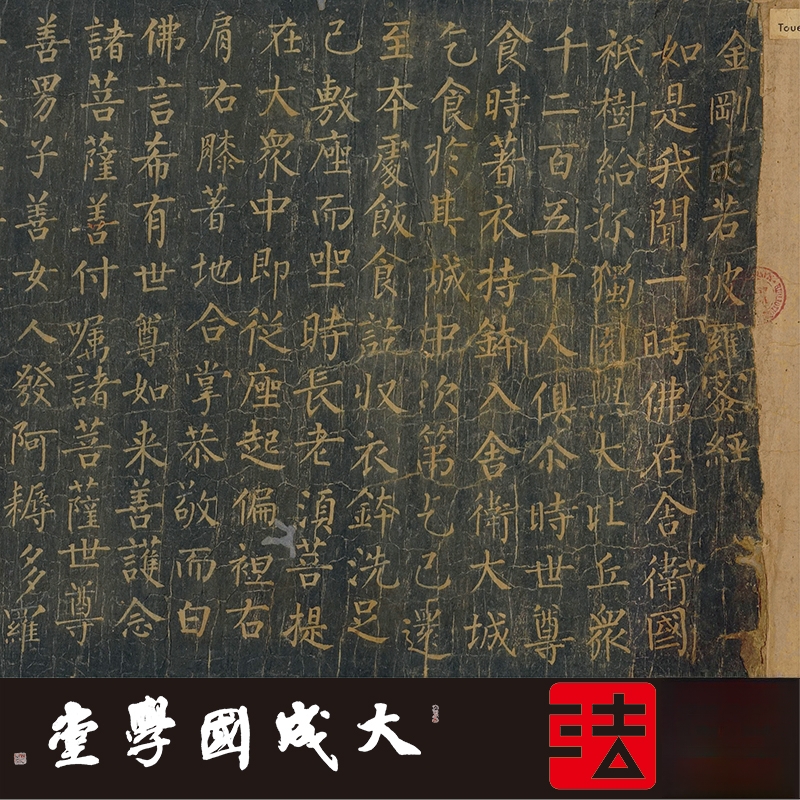 金剛般若波羅蜜經
如是我聞一時佛在舍衛國
祇樹給孤獨園與大比丘眾
千二百五十人俱尒時世尊
食時著衣持鉢入舍衛大城
乞食於其城中次第乞已還
至本處飯食訖収衣鉢洗足
已敷座而坐時長老須菩提
在大眾中即從座起偏袒右
肩右膝著地合掌恭敬而白
佛言希有世尊如来善護念
諸菩薩善付嘱諸菩薩世尊
善男子善女人發阿耨多羅
大成國學堂
法